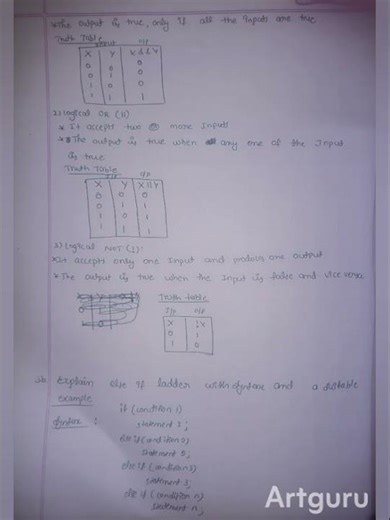 *The output is true, only if all the inputs are true
Truth Table
o/p
X Y X&&Y
0 0 0
0 1 0
1 0 0
1 1 1
2) Logical OR (||)
* It accepts two more Inputs
* The output is true when any one of the Input
is true
Truth Table
o/p
X Y X||Y
0 0 0
0 1 1
1 0 1
1 1 1
3) Logical NOT (!):
*It accepts only one Input and produces one output
*The output is true when the Input is false and vice versa
Truth table
I/p o/p
X !X
0 1
1 0
Explain else if ladder with syntax and a suitable
example
Syntax : if (condition 1)
statement 1;
else if (condition 2)
statement 2;
else if (condition 3)
statement 3;
else if (condition n)
statement n;
Artguru